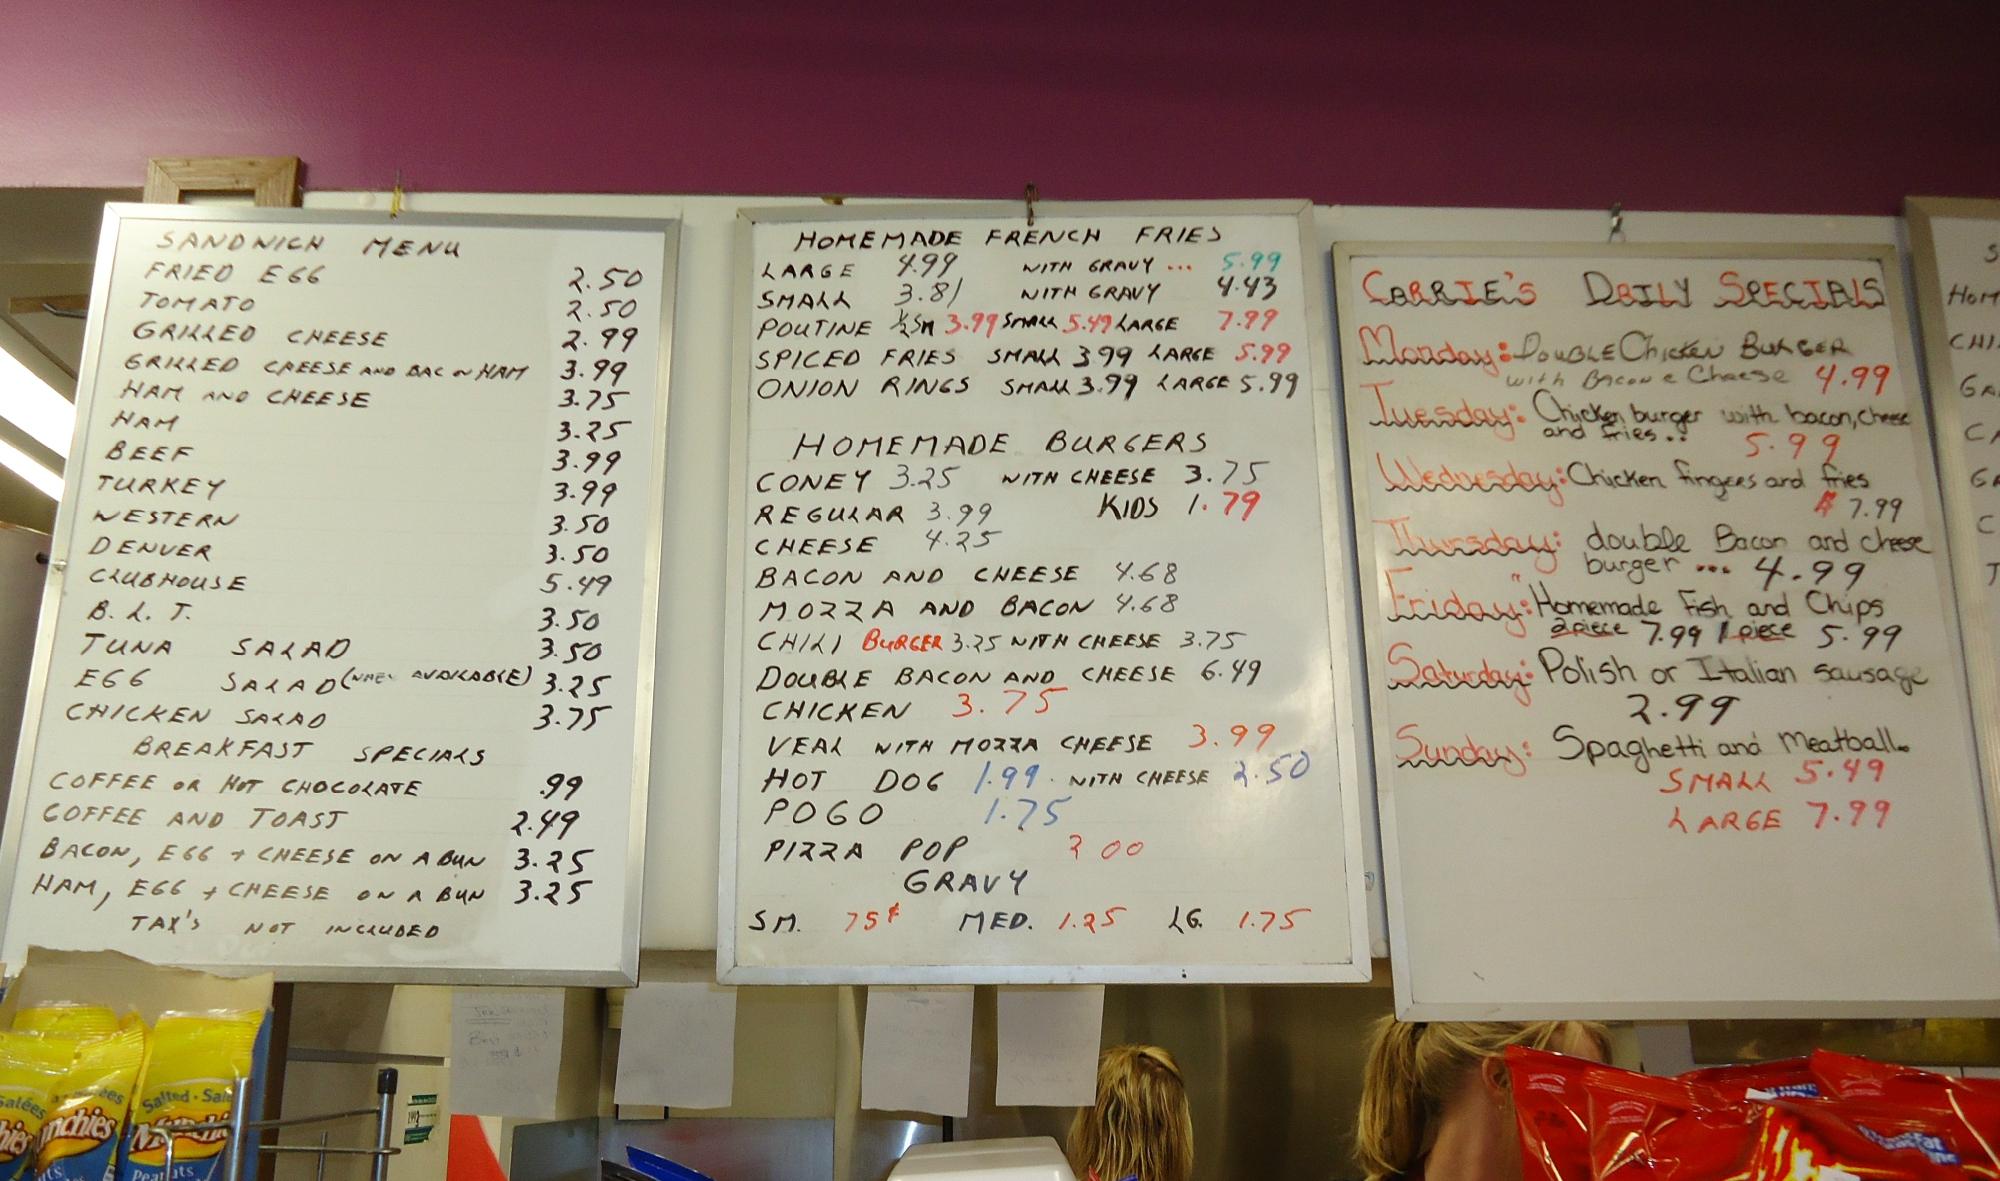 SANDWICH MENU
FRIED EGG 2.50
TOMATO 2.50
GRILLED CHEESE 2.99
GRILLED CHEESE AND BACON HAM 3.99
HAM AND CHEESE 3.75
HAM 3.25
BEEF 3.99
TURKEY 3.99
WESTERN 3.50
DENVER 3.50
CLUBHOUSE 5.49
B.L.T. 3.50
TUNA SALAD 3.50
EGG SALAD (WHEN AVAILABLE) 3.25
CHICKEN SALAD 3.75
BREAKFAST SPECIALS
COFFEE OR HOT CHOCOLATE .99
COFFEE AND TOAST 2.49
BACON, EGG + CHEESE ON A BUN 3.25
HAM, EGG + CHEESE ON A BUN 3.25
TAX'S NOT INCLUDED
HOMEMADE FRENCH FRIES
LARGE 4.99 WITH GRAVY ... 5.99
SMALL 3.81 WITH GRAVY 4.43
POUTINE ½SM 3.99 SMALL 5.49 LARGE 7.99
SPICED FRIES SMALL 3.99 LARGE 5.99
ONION RINGS SMALL 3.99 LARGE 5.99
HOMEMADE BURGERS
CONEY 3.25 WITH CHEESE 3.75
REGULAR 3.99 KIDS 1.79
CHEESE 4.25
BACON AND CHEESE 4.68
MOZZA AND BACON 4.68
CHILI BURGER 3.25 WITH CHEESE 3.75
DOUBLE BACON AND CHEESE 6.49
CHICKEN 3.75
VEAL WITH MOZZA CHEESE 3.99
HOT DOG 1.99 WITH CHEESE 2.50
POGO 1.75
PIZZA POP 2 00
GRAVY
SM. 75¢ MED. 1.25 LG. 1.75
CARRIE'S DAILY SPECIALS
Monday: DOUBLE Chicken BURGER
with Bacon e Cheese 4.99
Tuesday: Chicken burger with bacon, cheese
and fries.. 5.99
Wednesday: Chicken fingers and fries
7.99
Thursday: double Bacon and cheese
burger ... 4.99
Friday: Homemade Fish and Chips
2 piece 7.99 1 piece 5.99
Saturday: Polish or Italian sausage
2.99
Sunday: Spaghetti and Meatball.
SMALL 5.49
LARGE 7.99
Salted · Salé
Munchies
Peanuts